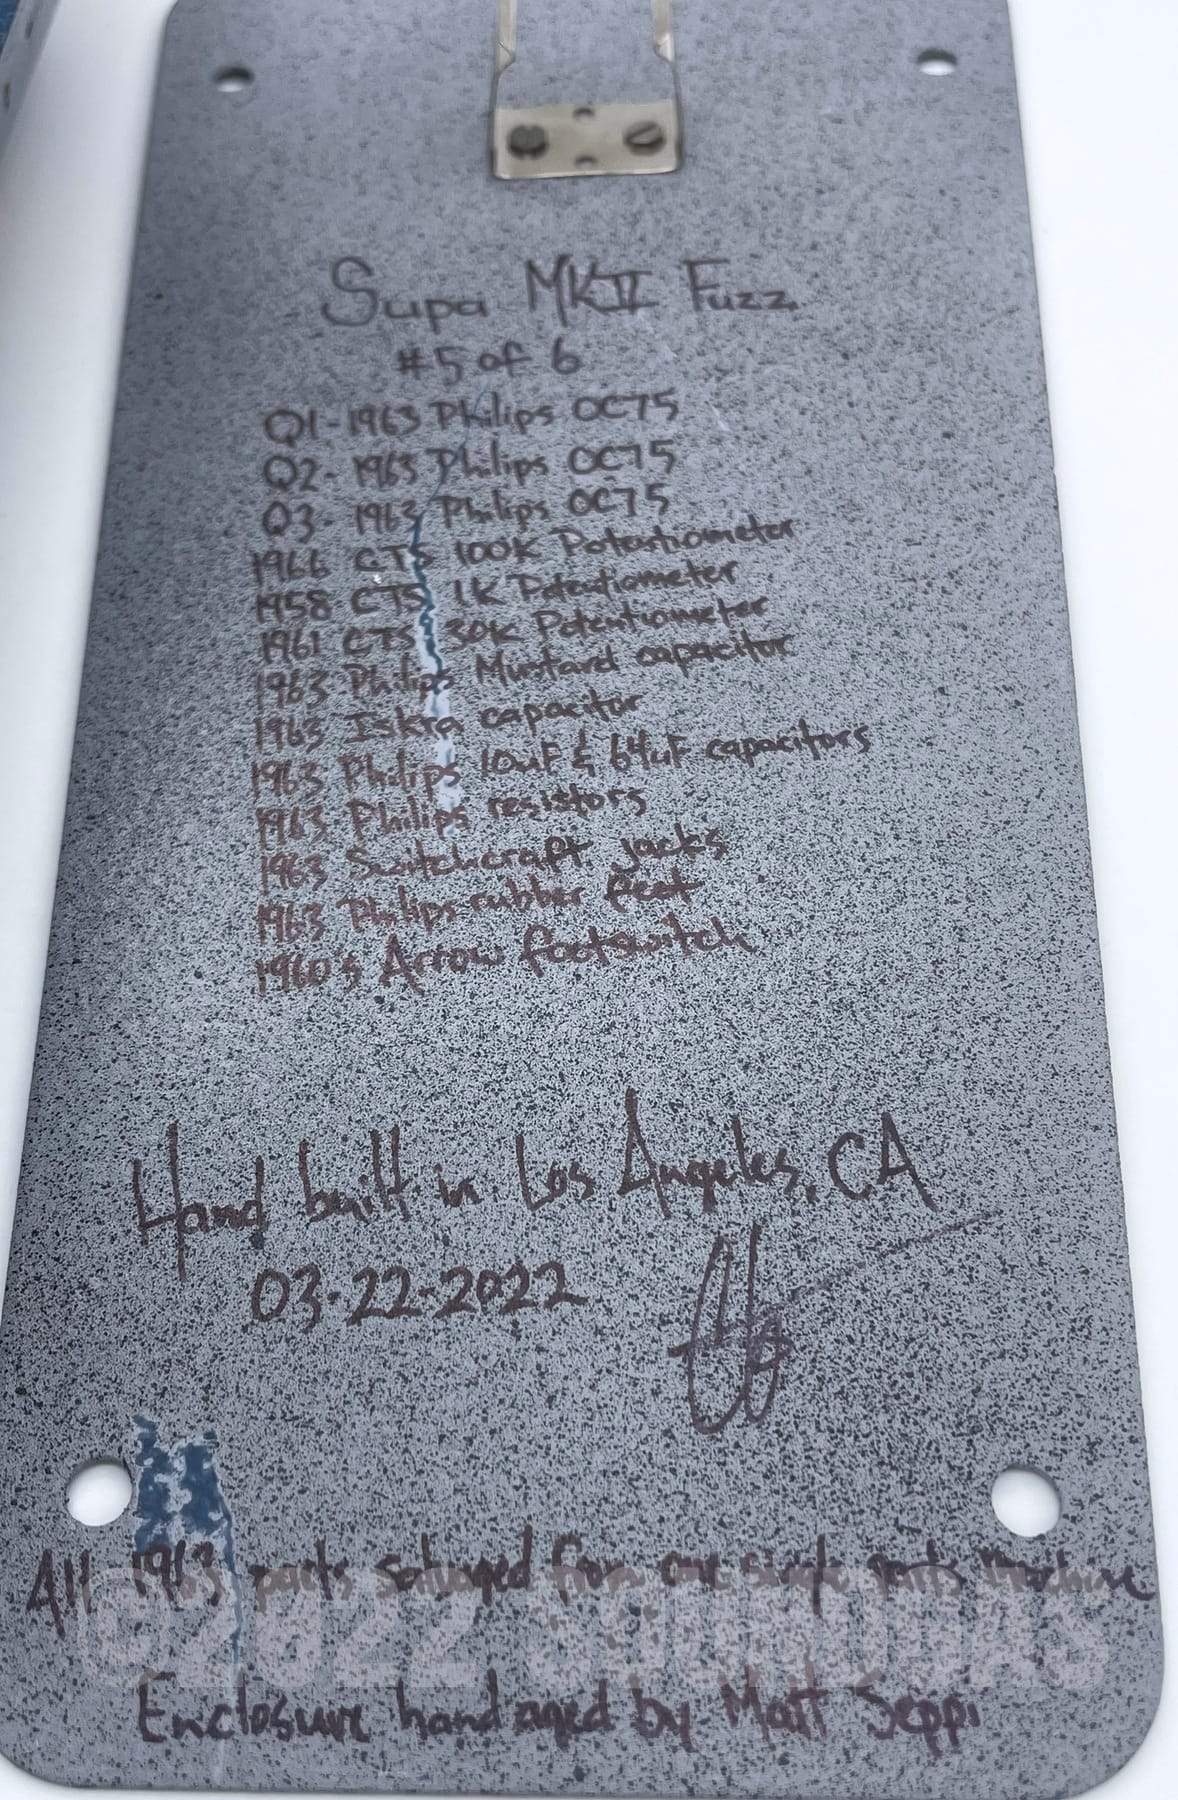 Supa MKII Fuzz
#5 of 6
Q1-1963 Philips OC75
Q2-1963 Philips OC75
Q3-1963 Philips OC75
1966 CTS 100K Potentiometer
1958 CTS 1K Potentiometer
1961 CTS 30K Potentiometer
1963 Philips Mustard capacitor
1963 Iskra capacitor
1963 Philips 10uF & 64uF capacitors
1963 Philips resistors
1963 Switchcraft jacks
1963 Philips rubber feet
1960's Arrow footswitch
Hand built in Los Angeles, CA
03-22-2022
All 1963 parts salvaged from one single parts machine
©2022 SOUNDAS
Enclosure hand aged by Matt Seppi